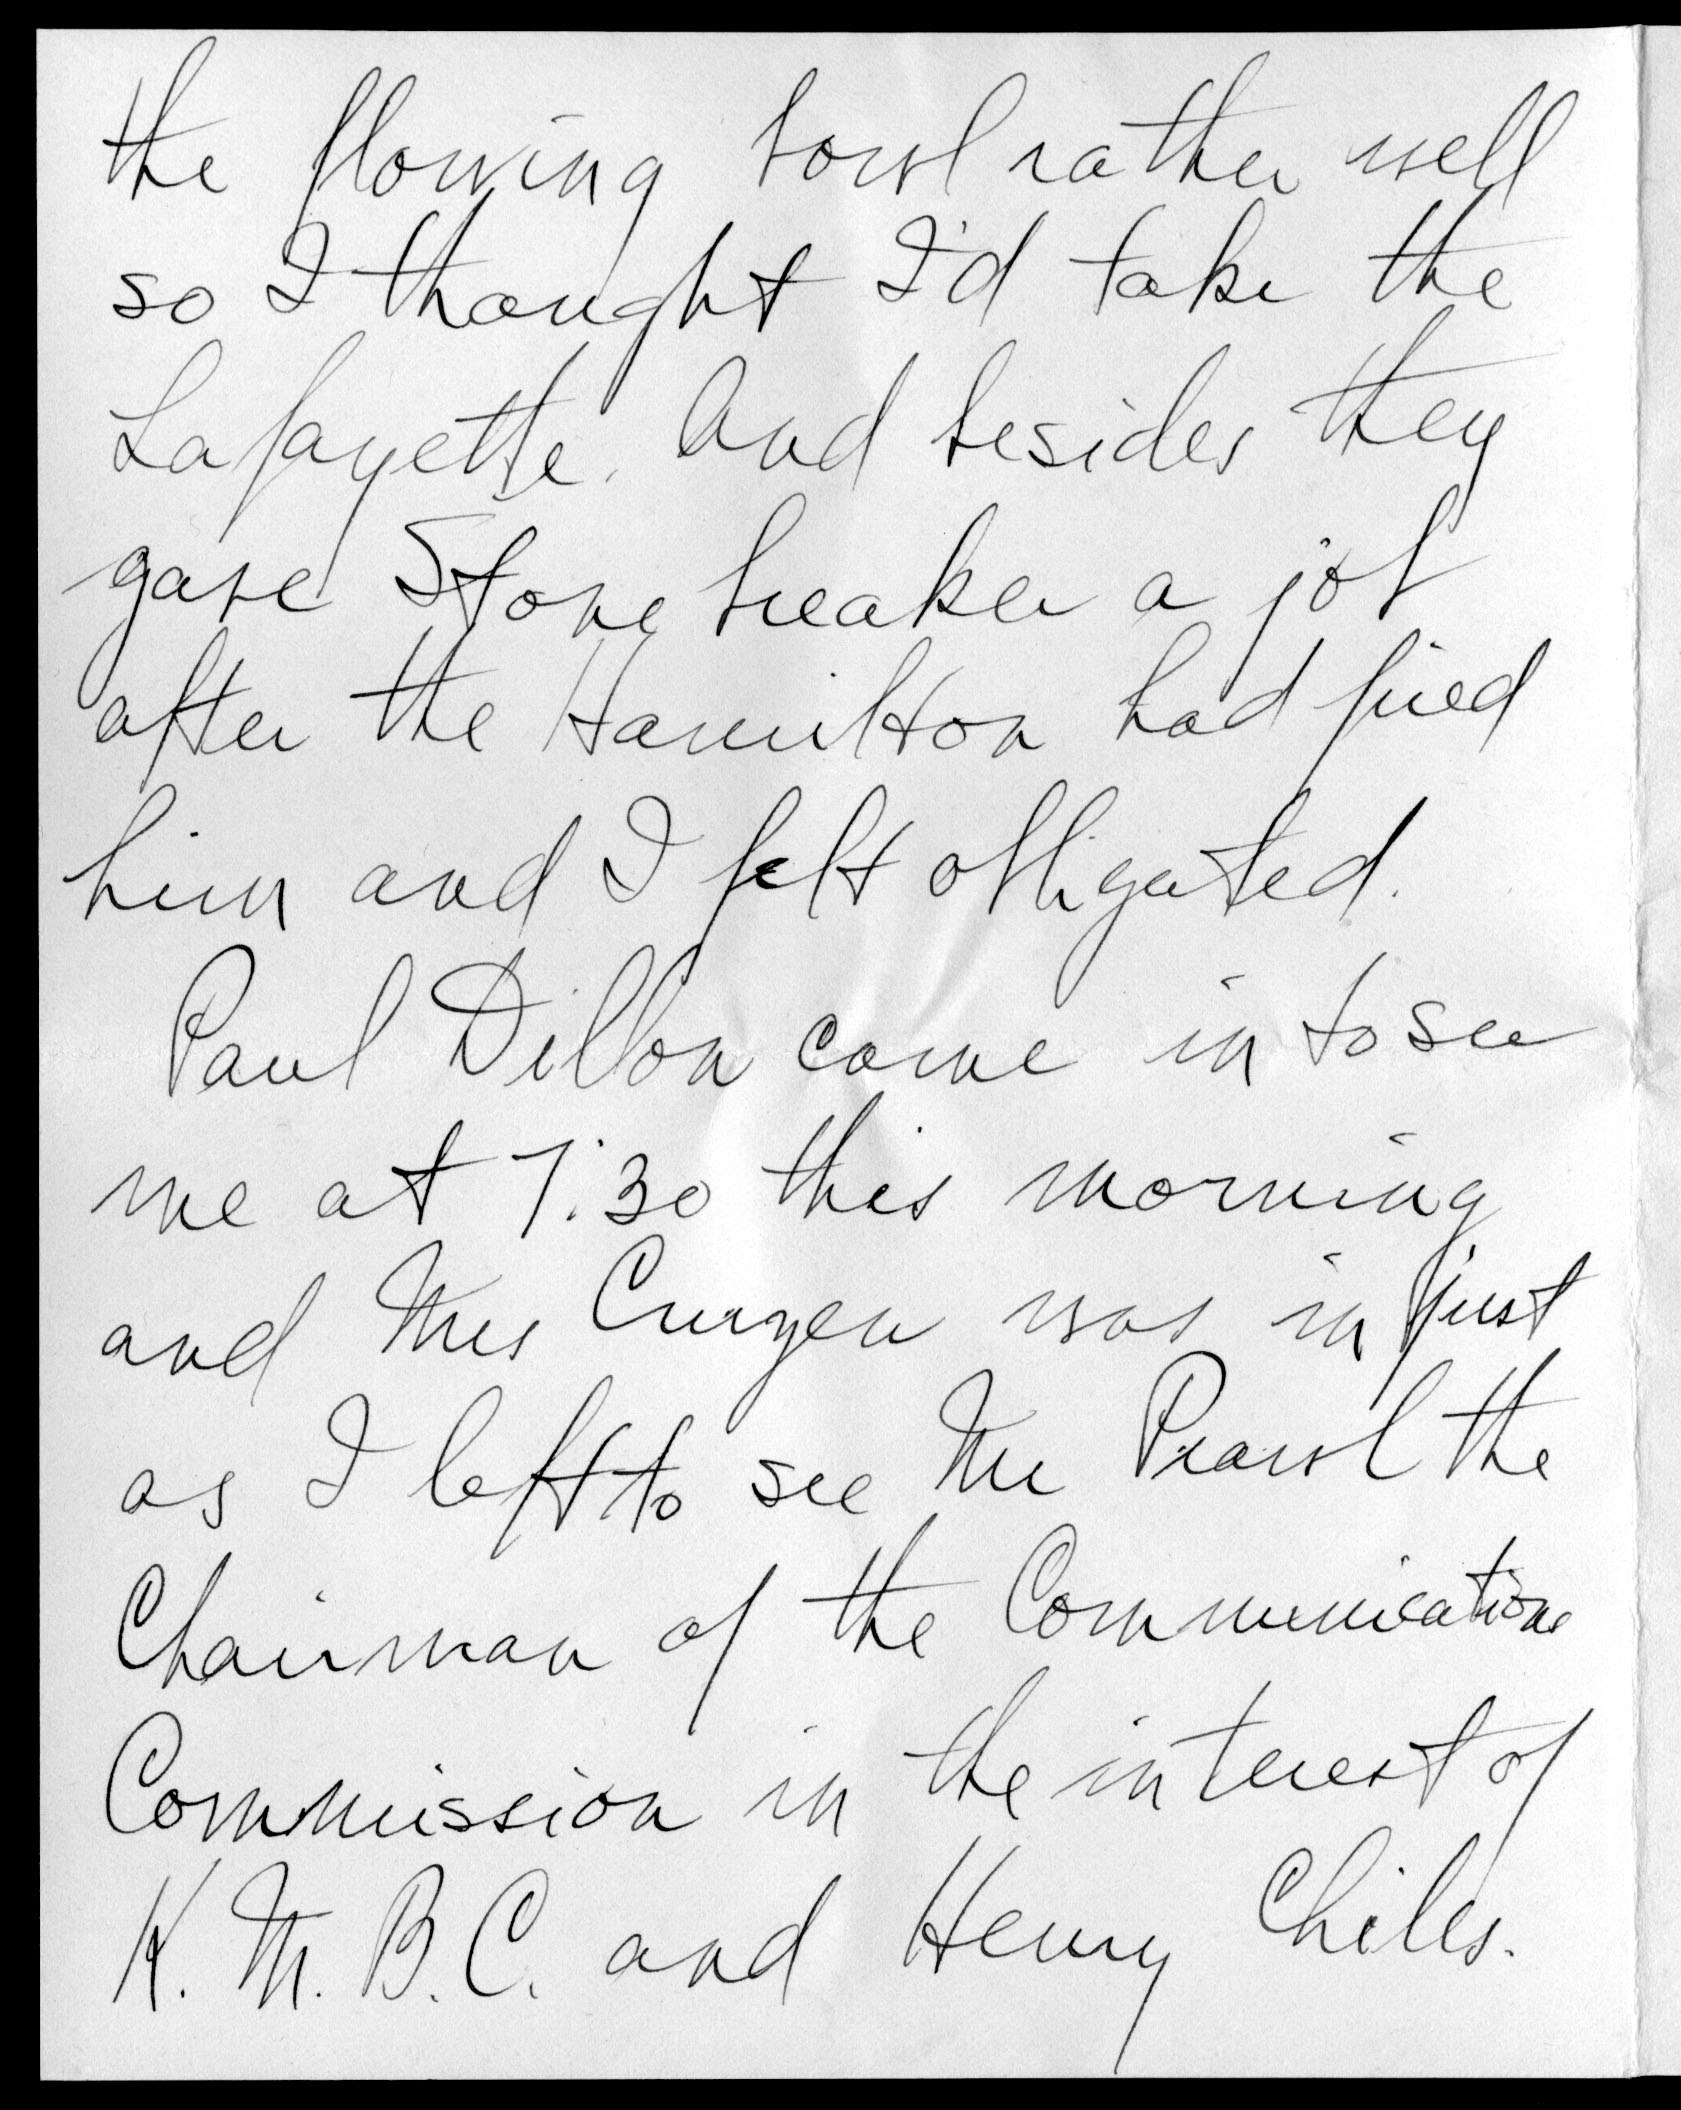 the flowing bowl rather well
so I thought I'd take the
Lafayette. And besides they
gave Stonebreaker a job
after the Hamilton had fired
him and I felt obligated.
Paul Dillon came in to see
me at 7:30 this morning
and Mrs Curzen was in just
as I left to see Mr Prawl the
Chairman of the Communications
Commission in the interest of
K. M. B. C. and Henry Chiles.